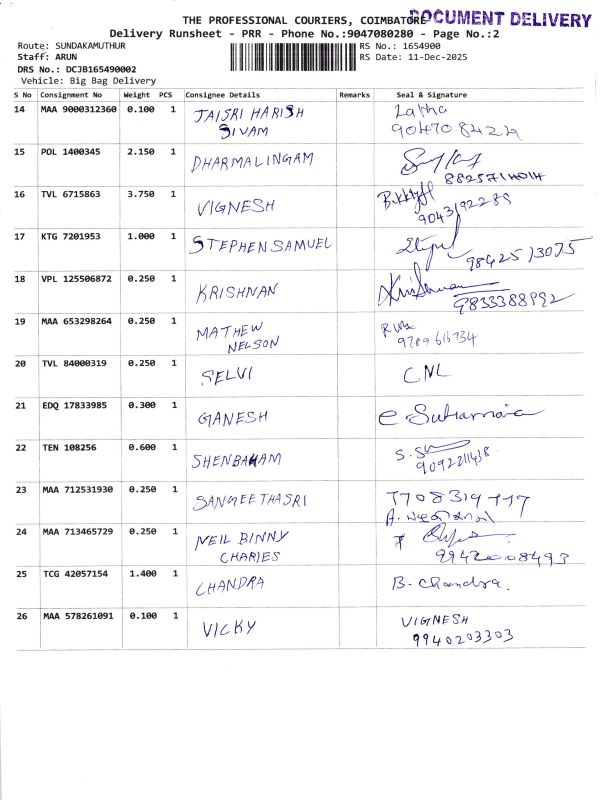 THE PROFESSIONAL COURIERS, COIMBATORE
DOCUMENT DELIVERY
Delivery Runsheet - PRR - Phone No.:9047080280 - Page No.:2
Route: SUNDAKAMUTHUR
RS No.: 1654900
Staff: ARUN
RS Date: 11-Dec-2025
DRS No.: DCJB165490002
Vehicle: Big Bag Delivery
S No Consignment No Weight PCS Consignee Details Remarks Seal & Signature
14 MAA 9000312360 0.100 1 JAISRI HARISH Latha
SIVAM 904708424
15 POL 1400345 2.150 1 DHARMALINGAM
16 TVL 6715863 3.750 1 VIGNESH
9043192289
17 KTG 7201953 1.000 1 STEPHEN SAMUEL
9842513075
18 VPL 125506872 0.250 1 KRISHNAN Krishnan
9833388992
19 MAA 653298264 0.250 1 MATHEW
NELSON 9789616734
20 TVL 84000319 0.250 1 SELVI CNL
21 EDQ 17833985 0.300 1 GANESH
22 TEN 108256 0.600 1 SHENBAHAM
9092211438
23 MAA 712531930 0.250 1 SANGEETHASRI 7708319777
24 MAA 713465729 0.250 1 NEIL BINNY
CHARIES 9942008493
25 TCG 42057154 1.400 1 CHANDRA B. Chandra.
26 MAA 578261091 0.100 1 VICKY VIGNESH
9940203303